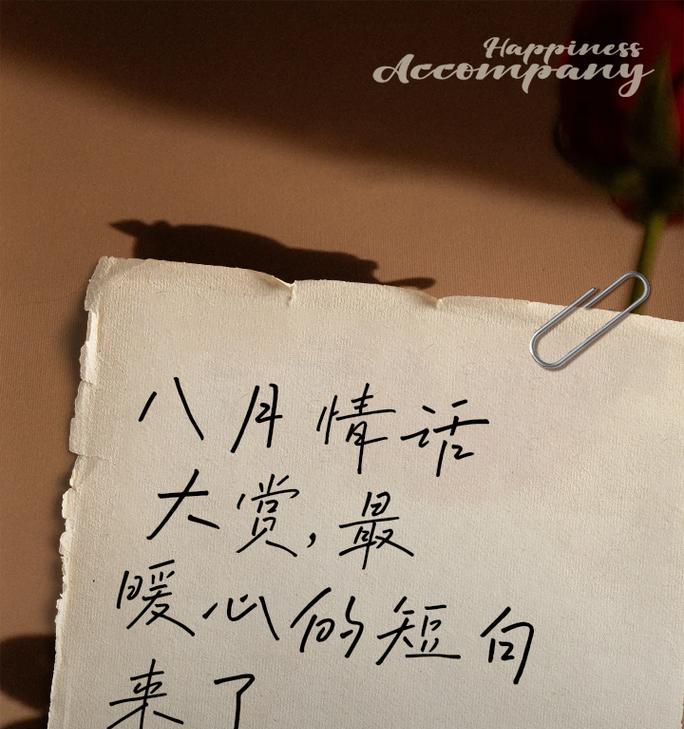 Happiness
Accompany
八月情话
大赏,最
暖心的短句
来了